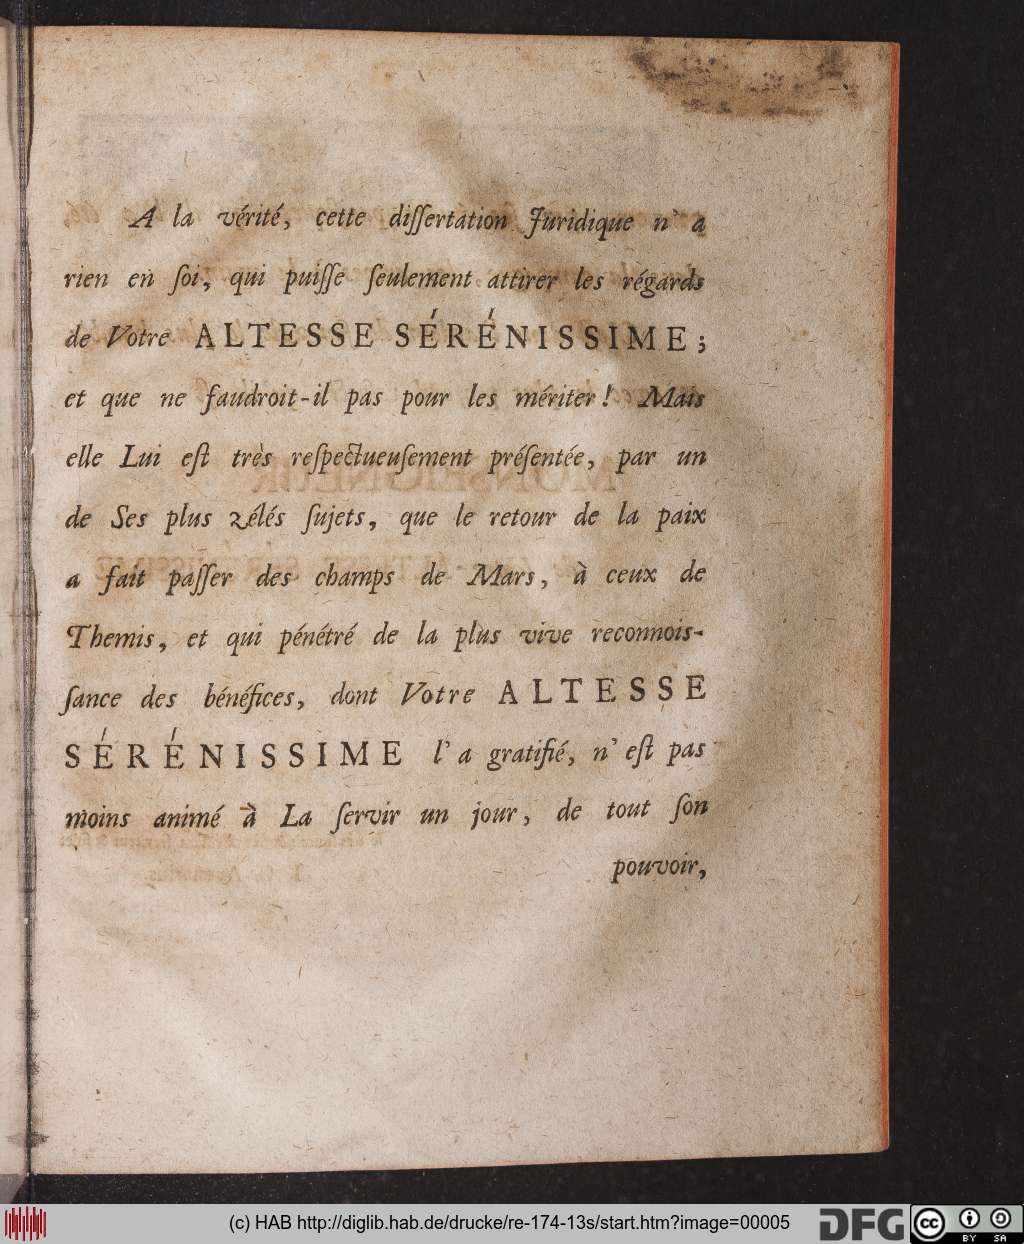 A la vérité, cette diſſertation Juridique n' a
rien en ſoi, qui puiſſe ſeulement attirer les régards
de Votre ALTESSE SÉRÉNISSIME;
et que ne faudroit-il pas pour les mériter! Mais
elle Lui eſt très reſpectueuſement préſentée, par un
de Ses plus zélés ſujets, que le retour de la paix
a fait paſſer des champs de Mars, à ceux de
Themis, et qui pénétré de la plus vive reconnois-
ſance des bénéfices, dont Votre ALTESSE
SÉRÉNISSIME l' a gratifié, n' eſt pas
moins animé à La ſervir un jour, de tout ſon
pouvoir,
(c) HAB http://diglib.hab.de/drucke/re-174-13s/start.htm?image=00005
DFG
cc BY SA